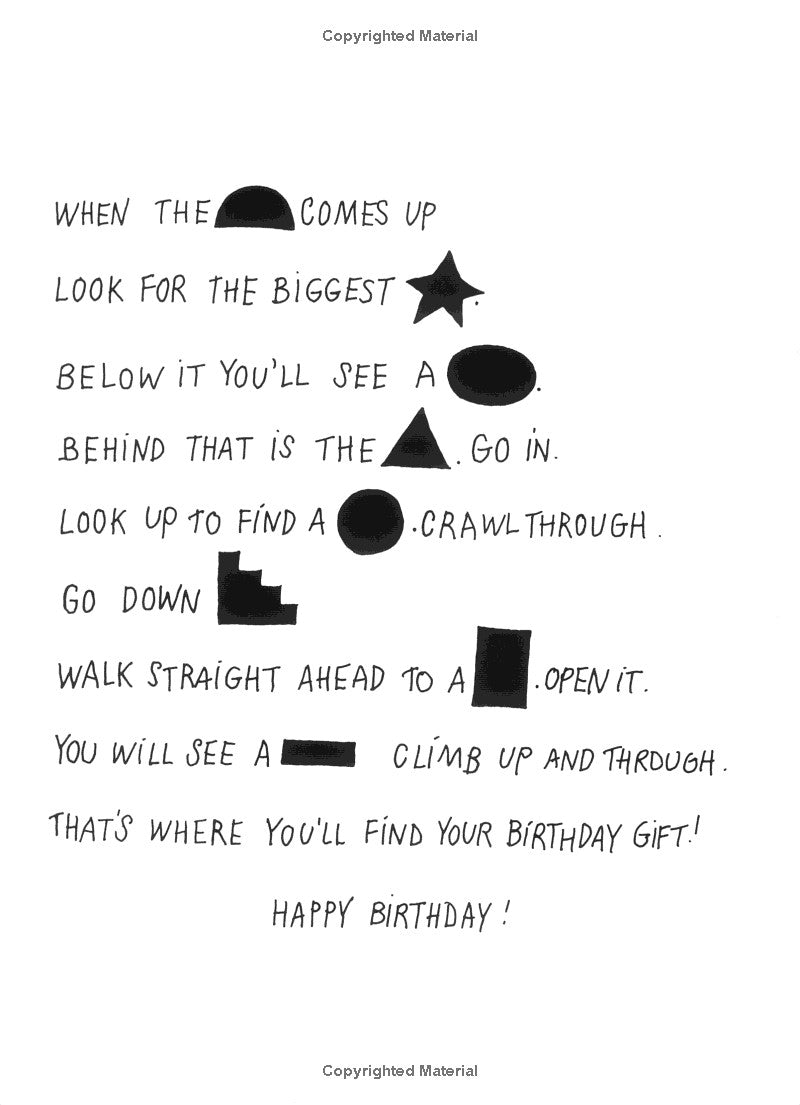 Copyrighted Material
WHEN THE COMES UP
LOOK FOR THE BIGGEST .
BELOW IT YOU'LL SEE A .
BEHIND THAT IS THE . GO IN.
LOOK UP TO FIND A . CRAWL THROUGH .
GO DOWN
WALK STRAIGHT AHEAD TO A . OPEN IT.
YOU WILL SEE A CLIMB UP AND THROUGH .
THAT'S WHERE YOU'LL FIND YOUR BIRTHDAY GIFT!
HAPPY BIRTHDAY !
Copyrighted Material